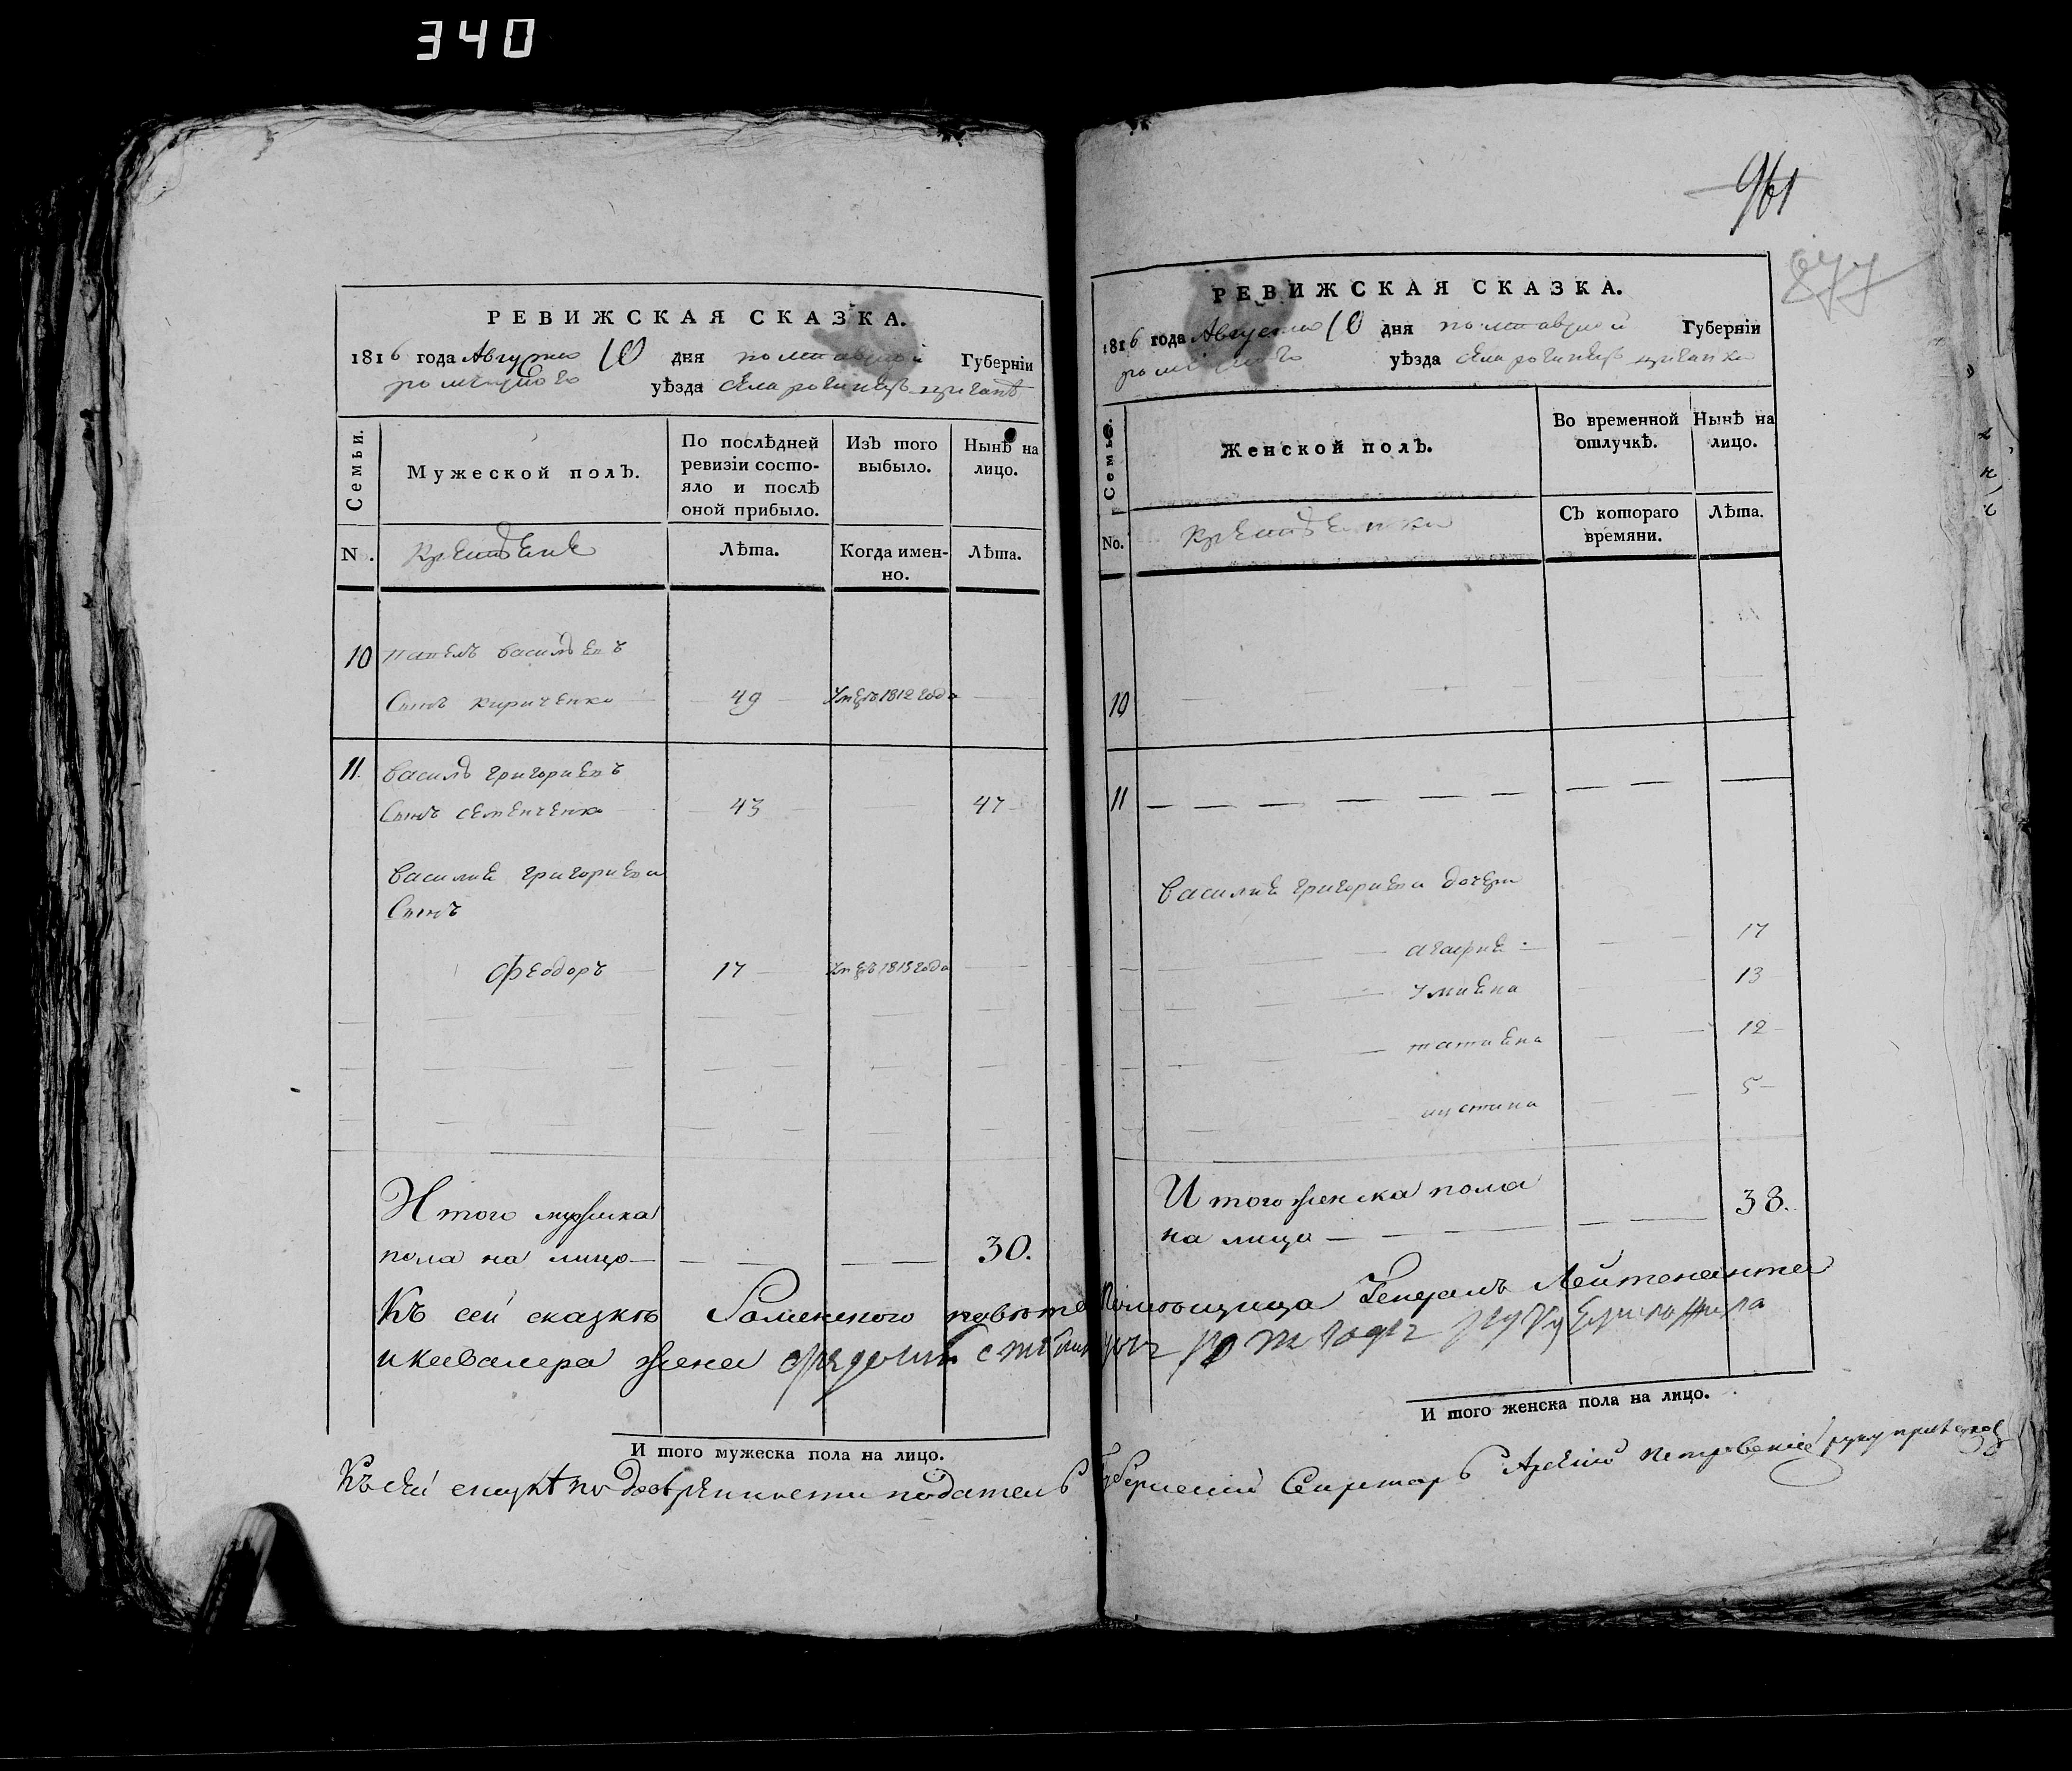 340
РЕВИЖСКАЯ СКАЗКА.
1816 года Августа 10 дня полтавской Губерніи
роменского уѣзда села
Семьи.
Мужеской полъ.
По послѣдней ревизіи состо-
яло и послѣ оной прибыло.
Изъ того выбыло.
Нынѣ на лицо.
N.
Крестяне
Лѣта.
Когда имен-
но.
Лѣта.
10 василевъ
Сынъ кириченко 49 1812 года
11. василь григориевъ
Сынъ семенченко 43 47
василия григориева
Сынъ
Феодоръ 17 года
И того мужеска
пола на лицо 30.
И того мужеска пола на лицо.
961
877
РЕВИЖСКАЯ СКАЗКА.
1816 года Августа 10 дня полтавской Губерніи
роменского уѣзда села
Семьи.
Женской полъ.
Во временной отлучкѣ.
Нынѣ на лицо.
No.
Крестянки
Съ котораго времяни.
Лѣта.
10
11
василия григориева дочери
агафия 17
улияна 13
татияна 12
иустина 5
И того женска пола
на лицо 38.
Къ сей сказкѣ Роменского повѣта Помѣщица Генералъ Лейтенанта
и кавалера жена руку приложила
И того женска пола на лицо.
Къ сей сказкѣ по довѣренности податель Губернский Секретарь Петровский руку приложил